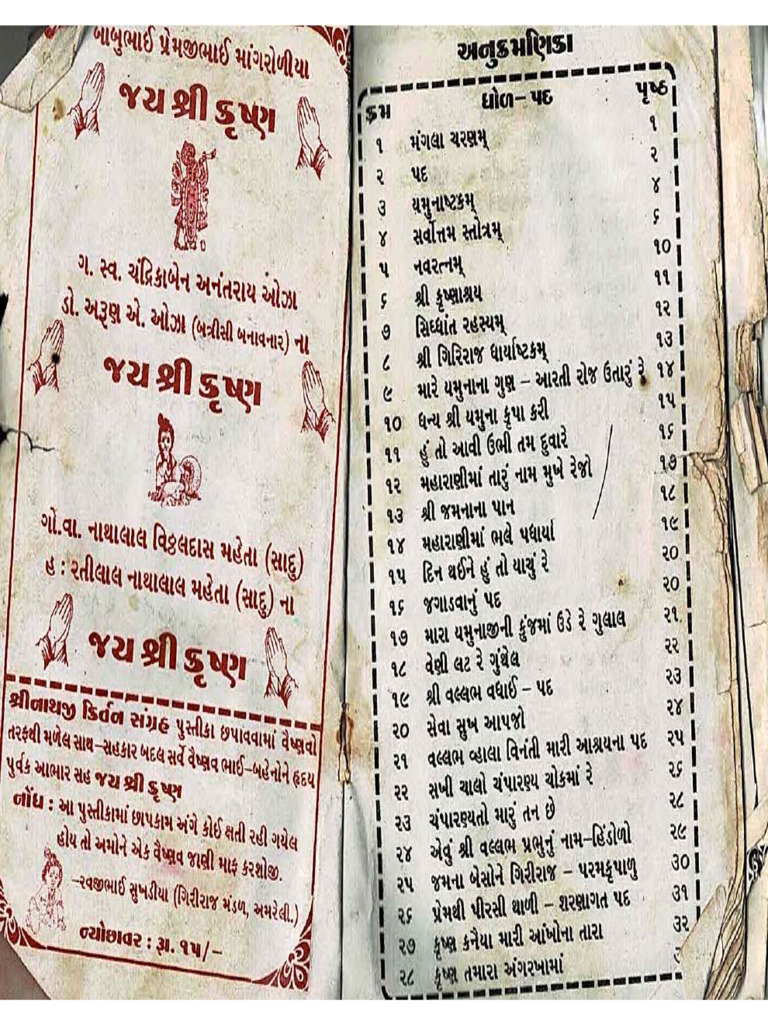 બાબુભાઈ પ્રેમજીભાઈ માંગરોળીયા
જય શ્રી કૃષ્ણ
ગ. સ્વ. ચંદ્રિકાબેન અનંતરાય ઓઝા
ડો. અરૂણ એ. ઓઝા (બત્રીસી બનાવનાર) ના
જય શ્રી કૃષ્ણ
ગો.વા. નાથાલાલ વિઠ્ઠલદાસ મહેતા (સાદુ)
હ : રતીલાલ નાથાલાલ મહેતા (સાદુ) ના
જય શ્રી કૃષ્ણ
શ્રીનાથજી કિર્તન સંગ્રહ પુસ્તીકા છપાવવામાં વૈષ્ણવો
તરફથી મળેલ સાથ-સહકાર બદલ સર્વે વૈષ્ણવ ભાઈ-બહેનોને હૃદય
પુર્વક આભાર સહ જય શ્રી કૃષ્ણ
નોંધ : આ પુસ્તીકામાં છાપકામ અંગે કોઈ ક્ષતી રહી ગયેલ
હોય તો અમોને એક વૈષ્ણવ જાણી માફ કરશોજી.
-રવજીભાઈ સુખડીયા (ગિરીરાજ મંડળ, અમરેલી.)
ન્યોછાવર : રૂા. ૧૫/-
અનુક્રમણિકા
ક્રમ ધોળ - પદ પૃષ્ઠ
૧ મંગલા ચરણમ્ ૧
૨ પદ ૨
૩ યમુનાષ્ટકમ્ ૪
૪ સર્વોત્તમ સ્તોત્રમ્ ૬
૫ નવરત્નમ્ ૧૦
૬ શ્રી કૃષ્ણાશ્રય ૧૧
૭ સિધ્ધાંત રહસ્યમ્ ૧૨
૮ શ્રી ગિરિરાજ ધાર્યાષ્ટકમ્ ૧૩
૯ મારે યમુનાના ગુણ - આરતી રોજ ઉતારું રે ૧૪
૧૦ ધન્ય શ્રી યમુના કૃપા કરી ૧૫
૧૧ હું તો આવી ઉભી તમ દુવારે ૧૬
૧૨ મહારાણીમાં તારું નામ મુખે રેજો ૧૭
૧૩ શ્રી જમનાના પાન ૧૮
૧૪ મહારાણીમાં ભલે પધાર્યા ૧૯
૧૫ દિન થઈને હું તો યાચું રે ૨૦
૧૬ જગાડવાનું પદ ૨૦
૧૭ મારા યમુનાજીની કુંજમાં ઉડે રે ગુલાલ ૨૧
૧૮ વેણી લટ રે ગુંથેલ ૨૨
૧૯ શ્રી વલ્લભ વધાઈ - પદ ૨૩
૨૦ સેવા સુખ આપજો ૨૪
૨૧ વલ્લભ વ્હાલા વિનંતી મારી આશ્રયના પદ ૨૫
૨૨ સખી ચાલો ચંપારણ્ય ચોકમાં રે ૨૬
૨૩ ચંપારણ્યતો મારું તન છે ૨૮
૨૪ એવું શ્રી વલ્લભ પ્રભુનું નામ-હિંડોળો ૨૯
૨૫ જમના બેસોને ગિરીરાજ - પરમકૃપાળુ ૩૦
૨૬ પ્રેમથી પીરસી થાળી - શરણાગત પદ ૩૧
૨૭ કૃષ્ણ કનૈયા મારી આંખોના તારા ૩૨
૨૮ કૃષ્ણ તમારા અંગરખામાં